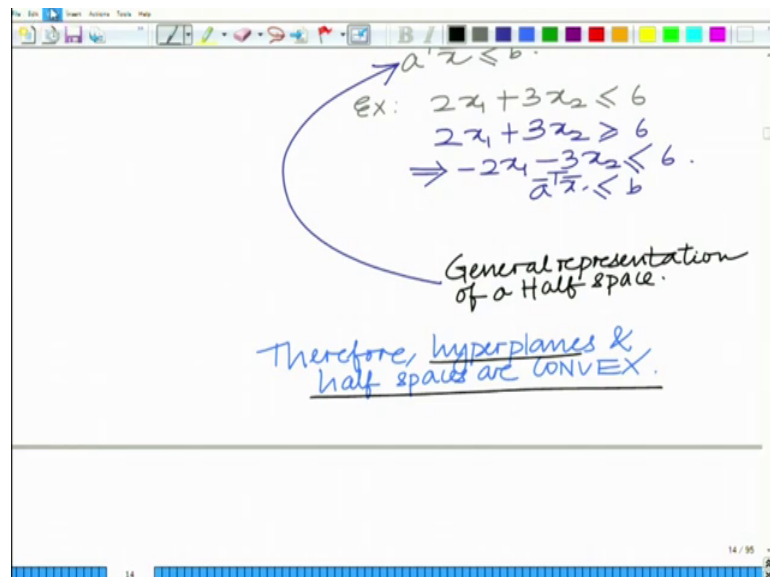 File Edit Insert Actions Tools Help
B I
a^T x̄ ≤ b.
Ex: 2x₁ + 3x₂ ≤ 6
2x₁ + 3x₂ ≥ 6
⇒ -2x₁ - 3x₂ ≤ 6.
ā^T x̄ ≤ b
General representation
of a Half space.
Therefore, hyperplanes &
half spaces are CONVEX.
14 / 95
14